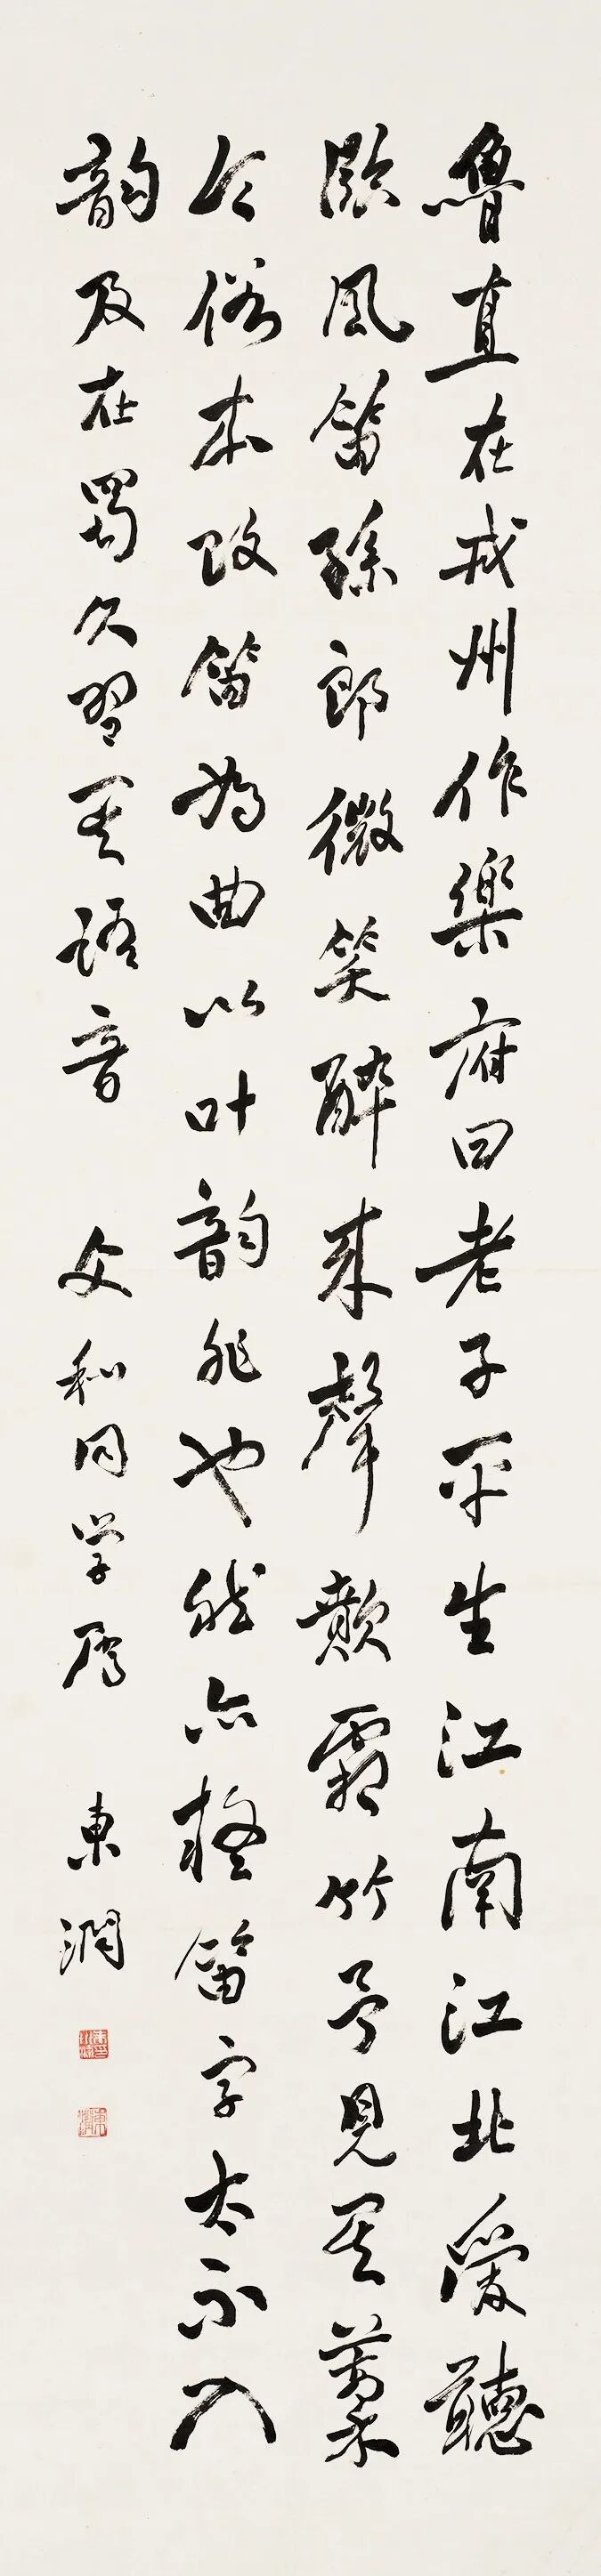 魯直在戎州作樂府曰老子平生江南江北愛聽
臨風笛孫郎微笑醉來聲歕霜竹予見其藁
今俗本改笛為曲以叶韻非也然亦疑笛字太不入
韻及在蜀久習其語音 文和同学属 東潤